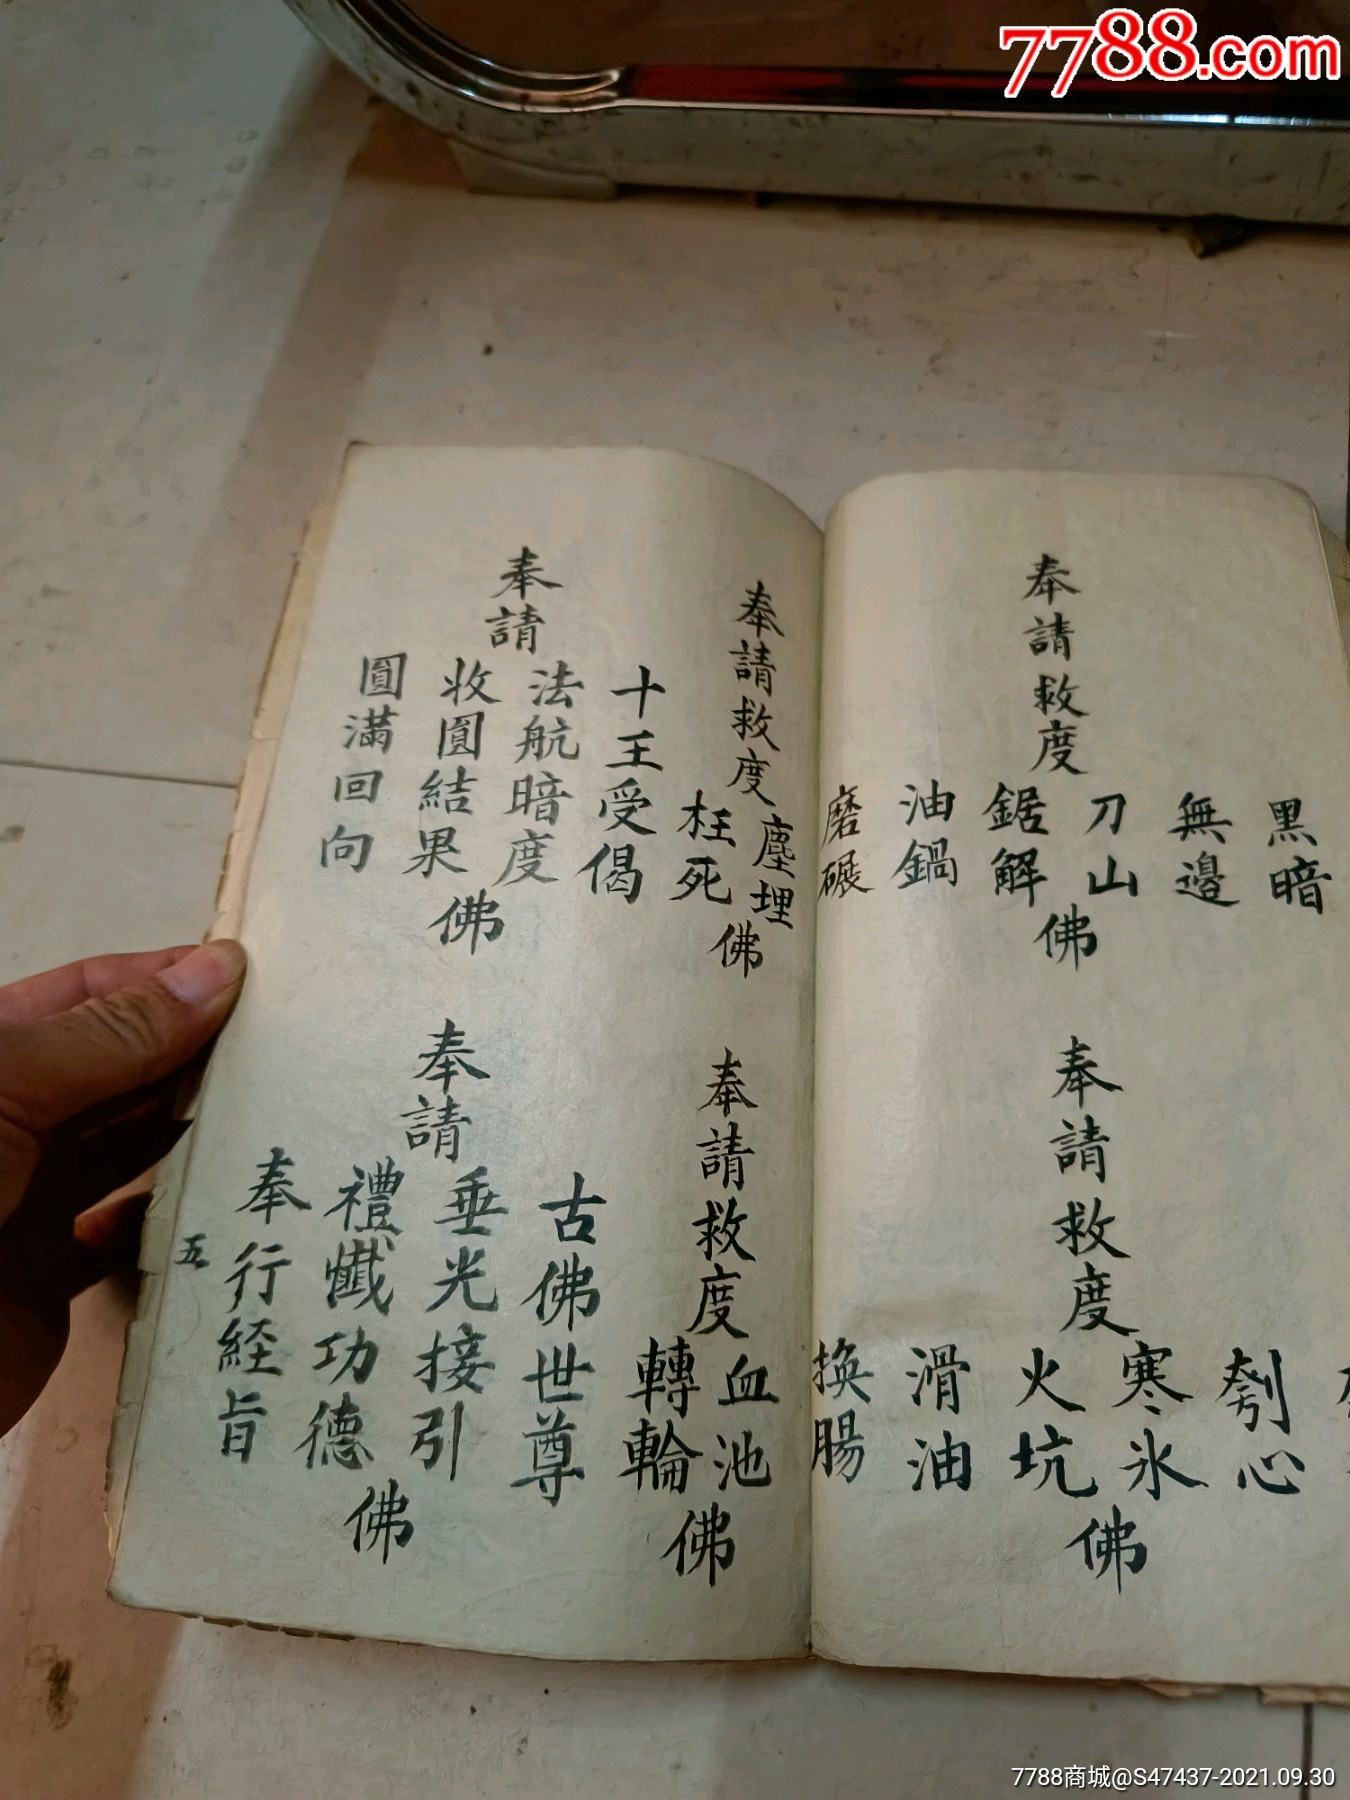 7788.com
奉請救度
黑暗
無邊
刀山
鋸解
油鍋
磨碾
佛
奉請救度
剜心
寒冰
火坑
滑油
換腸
佛
奉請救度
塵埋
枉死
佛
奉請救度
血池
轉輪
佛
奉請
十王受偈
法航暗度
收圓結果
圓滿回向
佛
奉請
古佛世尊
垂光接引
禮懺功德
奉行経旨
佛
五
7788商城@S47437-2021.09.30